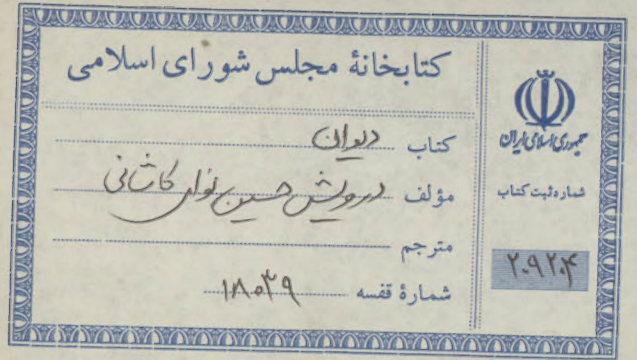 کتابخانهٔ مجلس شورای اسلامی
کتاب دیوان
مؤلف درویش حسین نوای کاشانی
مترجم
شمارهٔ قفسه ۱۸۵۳۹
جمهوری اسلامی ایران
شمارهٔ ثبت کتاب
۲۰۹۲۰۴